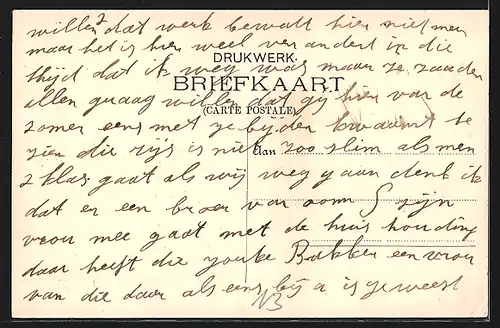 willen dat werk bewalt hier niet meer
maar het is hier weel ver andert in die
DRUKWERK.
thijd dat ik weg was maar ze zouden
BRIEFKAART
allen graag willen dat gij hier van de
(CARTE POSTALE)
zomer eens met ze bijden kwaamt te
Aan
zien die rijs is niet zoo slim als men
2 klas gaat als wij weg gaan denk ik
dat er een broer van oom S zijn
vrou mee gaat met de huis houding
daar heeft die youke Bakker een vrou
van die daar als eens bij a is geweest